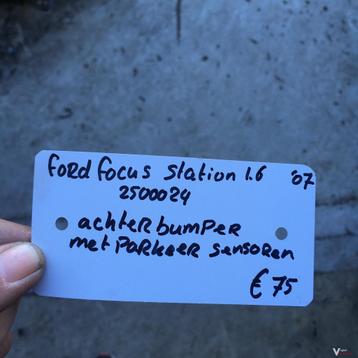 Ford focus Station 1.6 '07
2500024
achterbumper
met Parkeer sensoren
€ 75